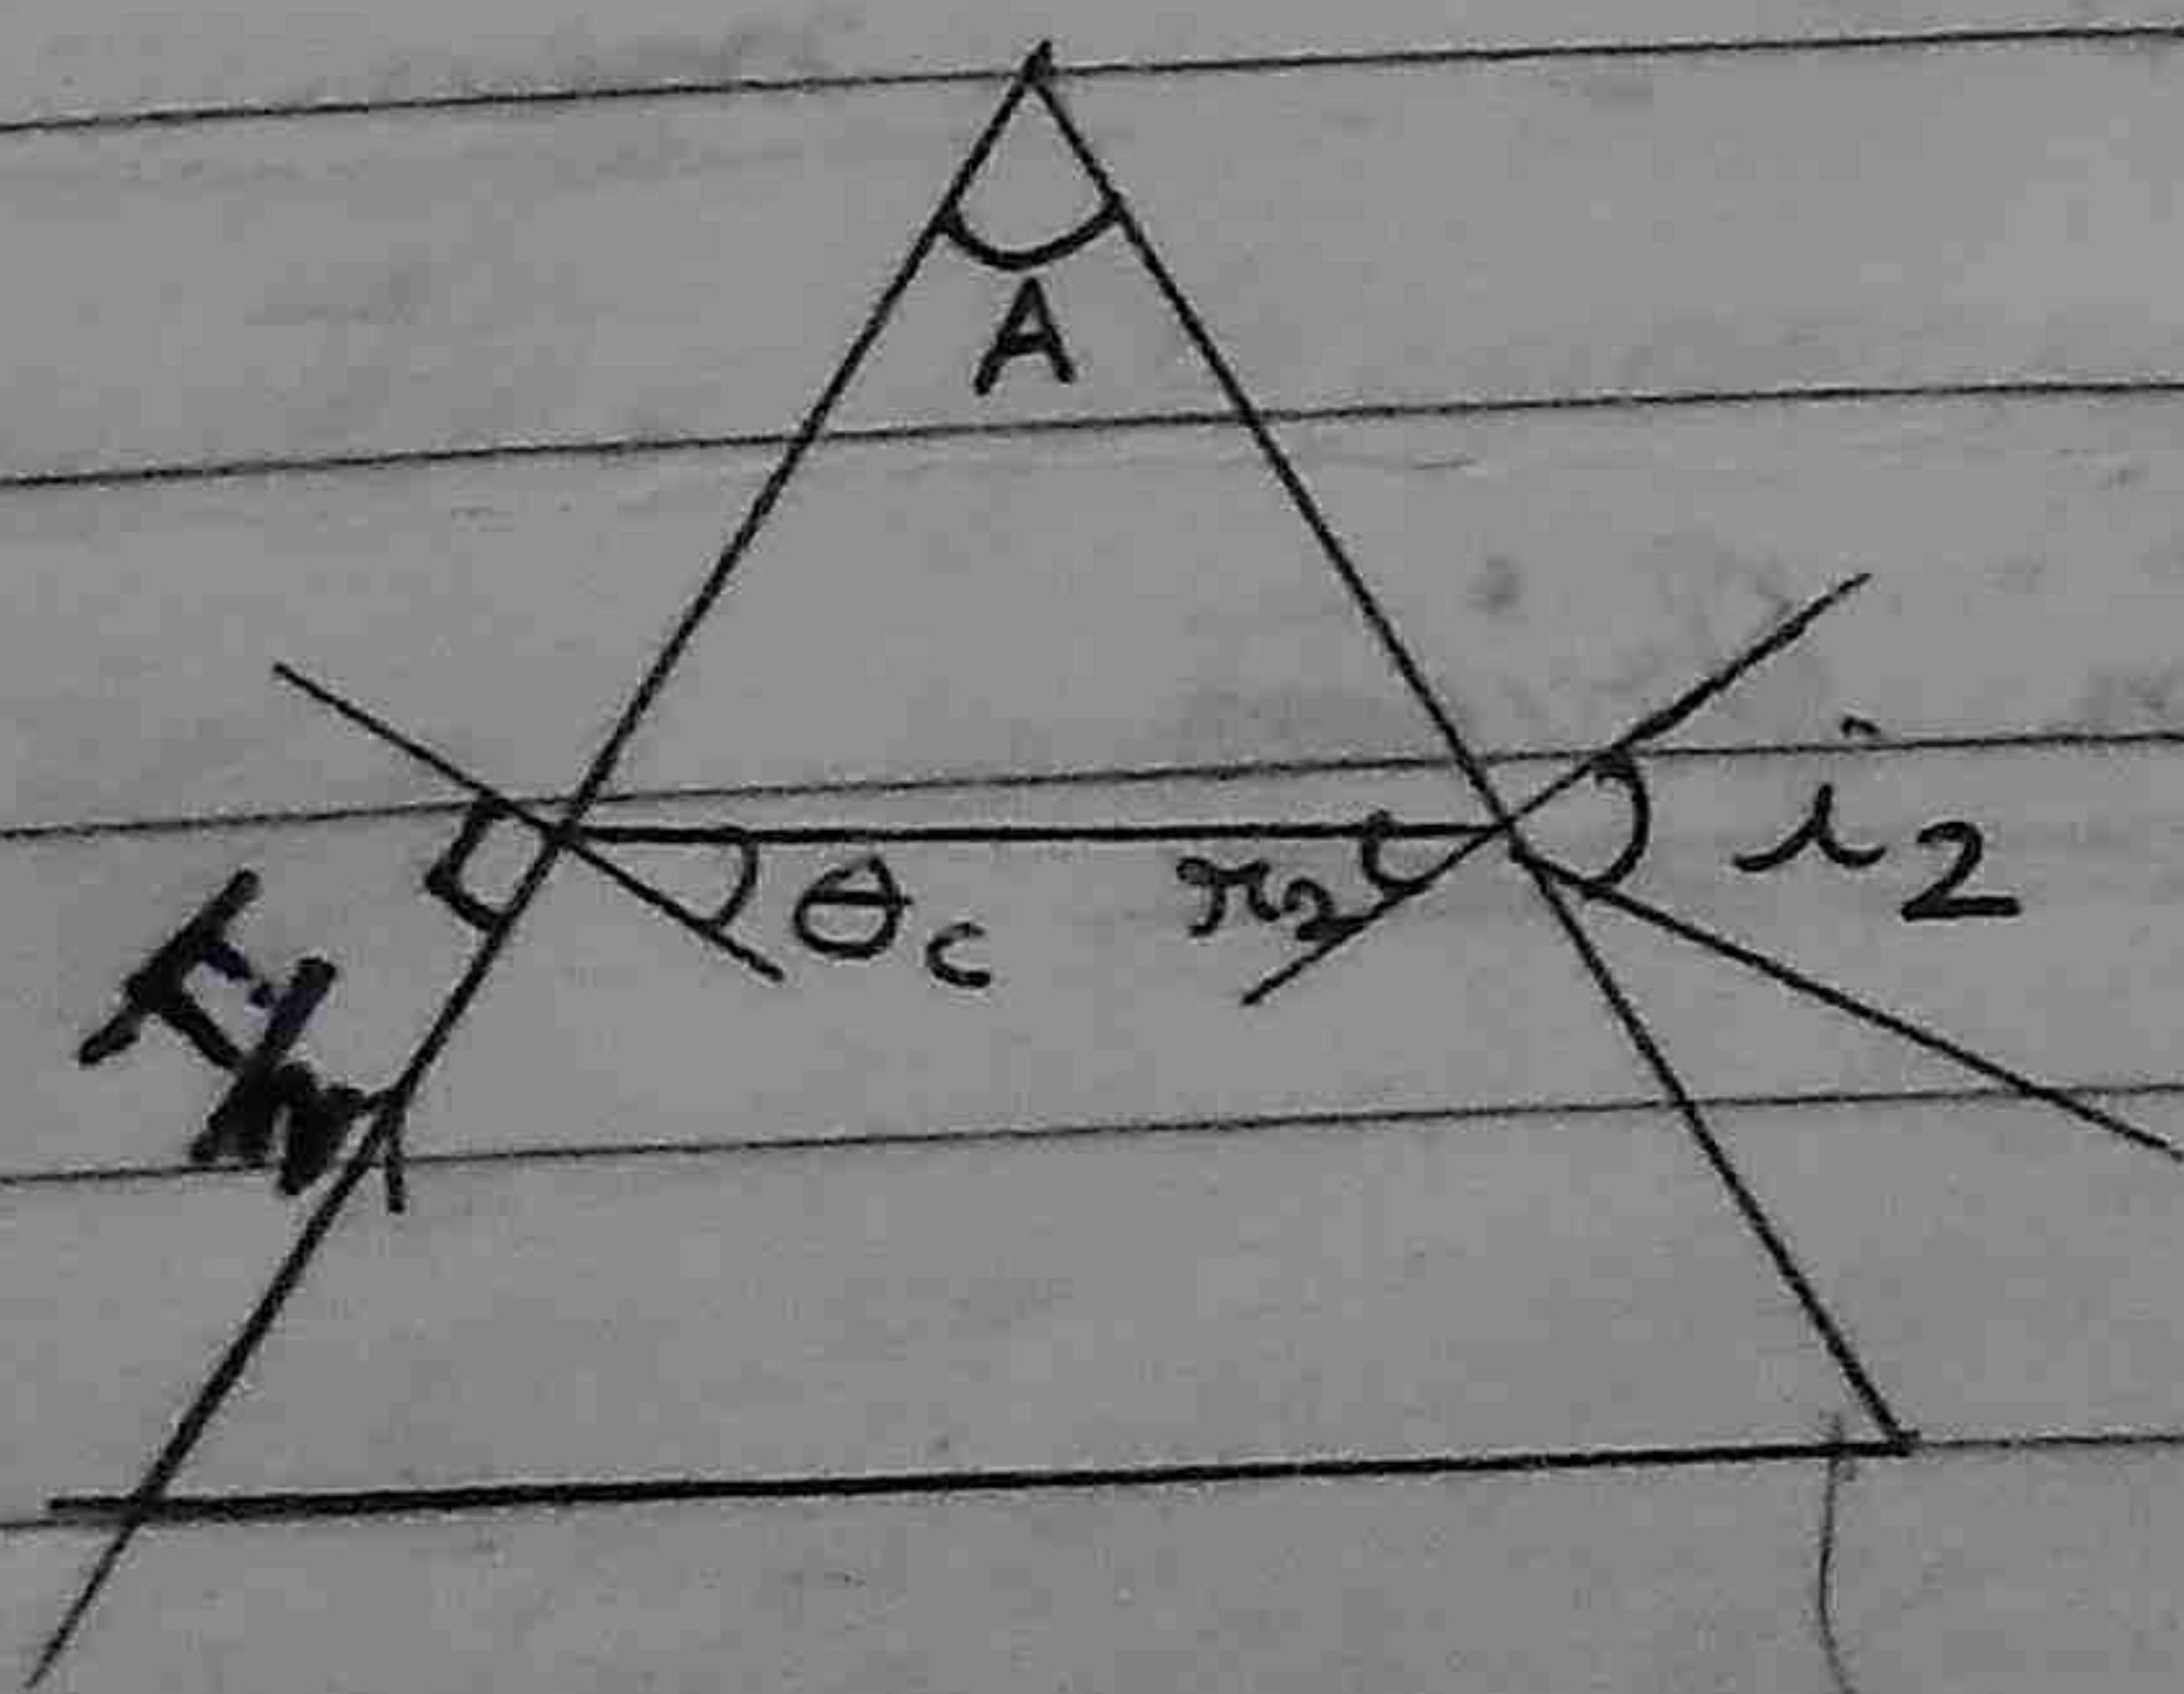 A
θc
r2
i2